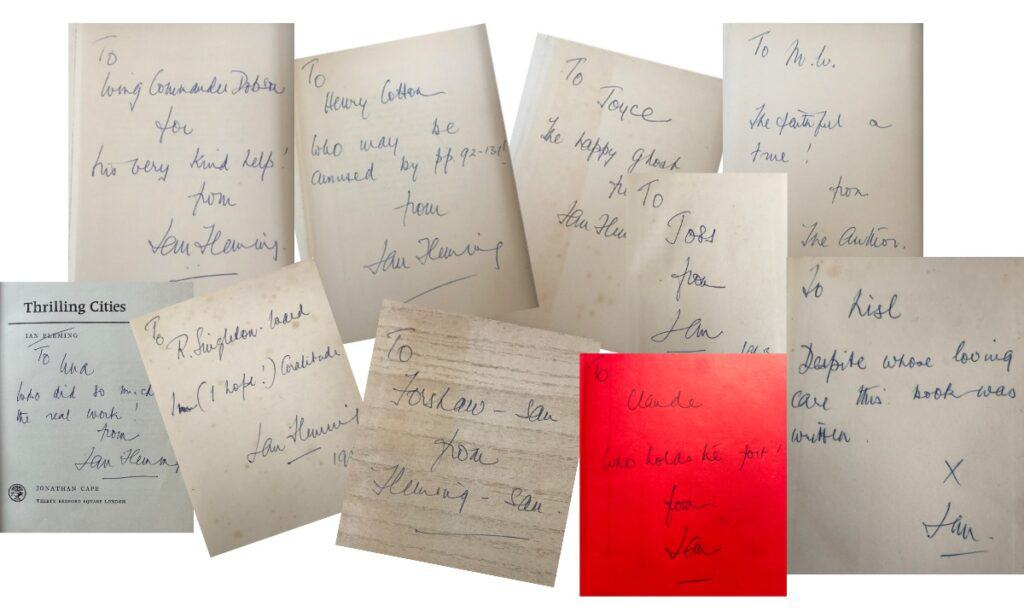 To
Wing Commander Dobson
for
his very kind help!
from
Ian Fleming.
To
Henry Cotton
who may be
amused by pp. 92-131!
from
Ian Fleming
To
Joyce
The happy ghost
Ian Flem
To
Joss
from
Ian
To M.W.
The faithful a
true!
from
The Author.
Thrilling Cities
IAN FLEMING
To Una
who did so much
the real work!
from
Ian Fleming
JONATHAN CAPE
THIRTY BEDFORD SQUARE LONDON
To
R. Singleton-Ward
In (I hope!) Gratitude
Ian Fleming
To
Forshaw-san
from
Fleming-san.
To
Claude
who holds the fort!
from
Ian
To
Lisl
Despite whose loving
care this book was
written.
X
Ian.